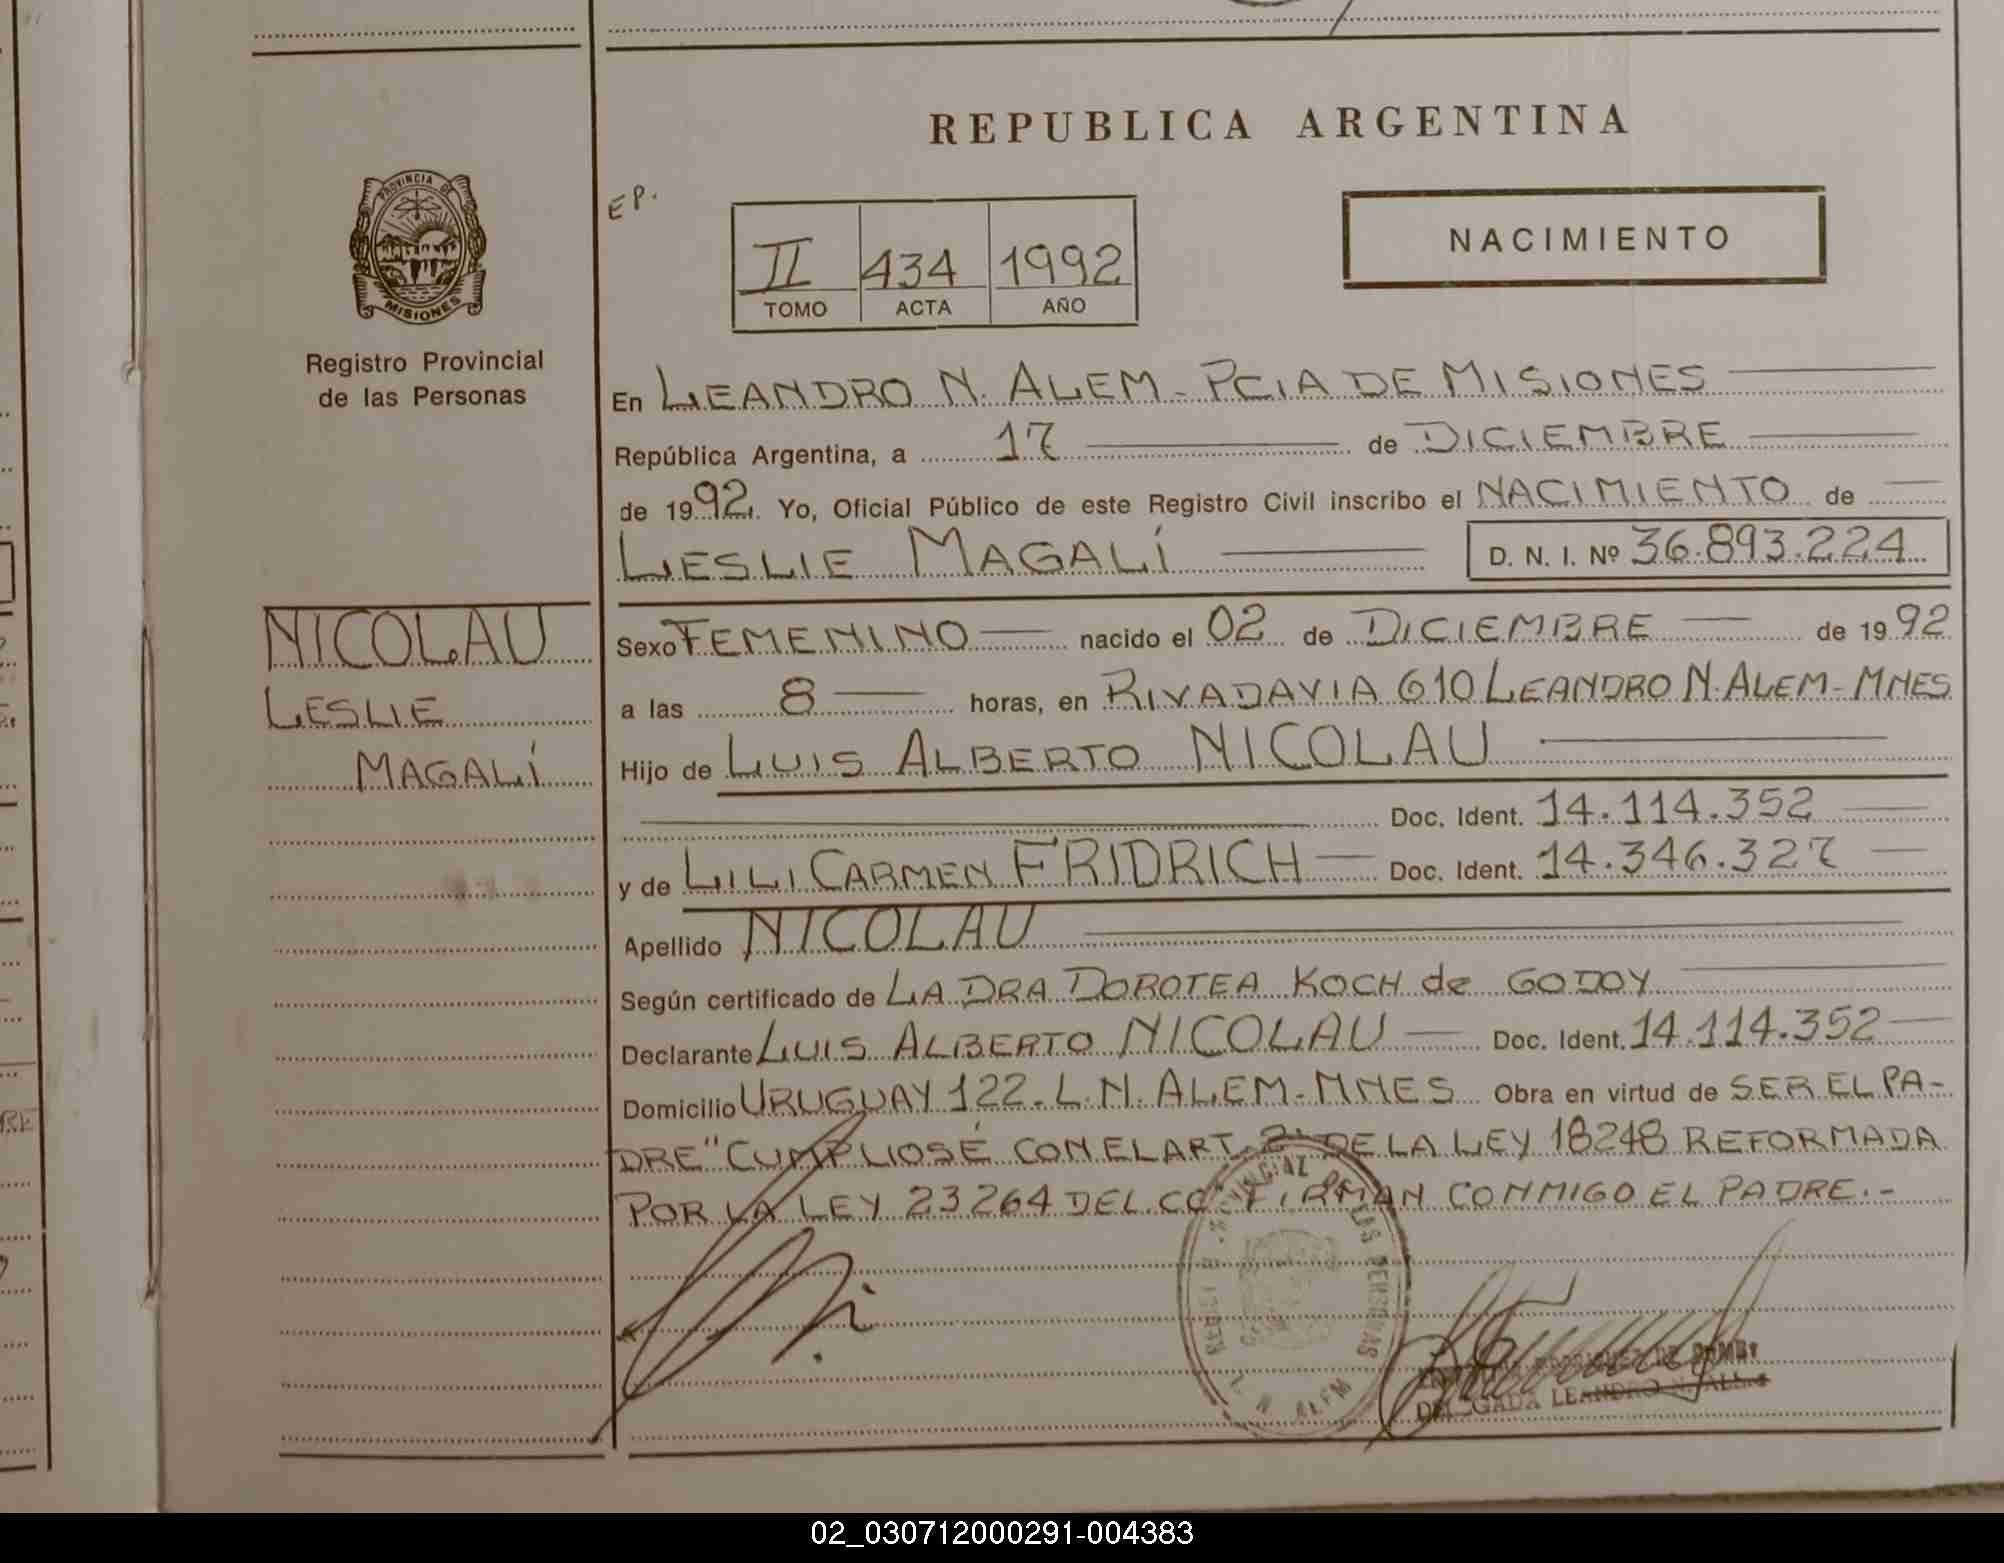 REPUBLICA ARGENTINA
PROVINCIA DE
MISIONES
Registro Provincial
de las Personas
EP.
II 434 1992
TOMO ACTA AÑO
NACIMIENTO
En LEANDRO N. ALEM - PCIA DE MISIONES
República Argentina, a 17 de DICIEMBRE
de 1992. Yo, Oficial Público de este Registro Civil inscribo el NACIMIENTO de
LESLIE MAGALÍ D. N. I. Nº 36.893.224
NICOLAU
LESLIE
MAGALÍ
Sexo FEMENINO nacido el 02 de DICIEMBRE de 1992
a las 8 horas, en RIVADAVIA 610 LEANDRO N. ALEM - MNES
Hijo de LUIS ALBERTO NICOLAU
Doc. Ident. 14.114.352
y de LILI CARMEN FRIDRICH Doc. Ident. 14.346.327
Apellido NICOLAU
Según certificado de LA DRA DOROTEA KOCH de GODOY
Declarante LUIS ALBERTO NICOLAU Doc. Ident. 14.114.352
Domicilio URUGUAY 122 - L.N. ALEM - MNES Obra en virtud de SER EL PA-
DRE" CUMPLIOSÉ CON EL ART. 2º DE LA LEY 18248 REFORMADA
POR LA LEY 23264 DEL CC" FIRMAN CONMIGO EL PADRE.-
LAS PERSONAS
L. N. ALEM
RODRIGUEZ DE
DELEGADA LEANDRO N. ALEM
02_030712000291-004383